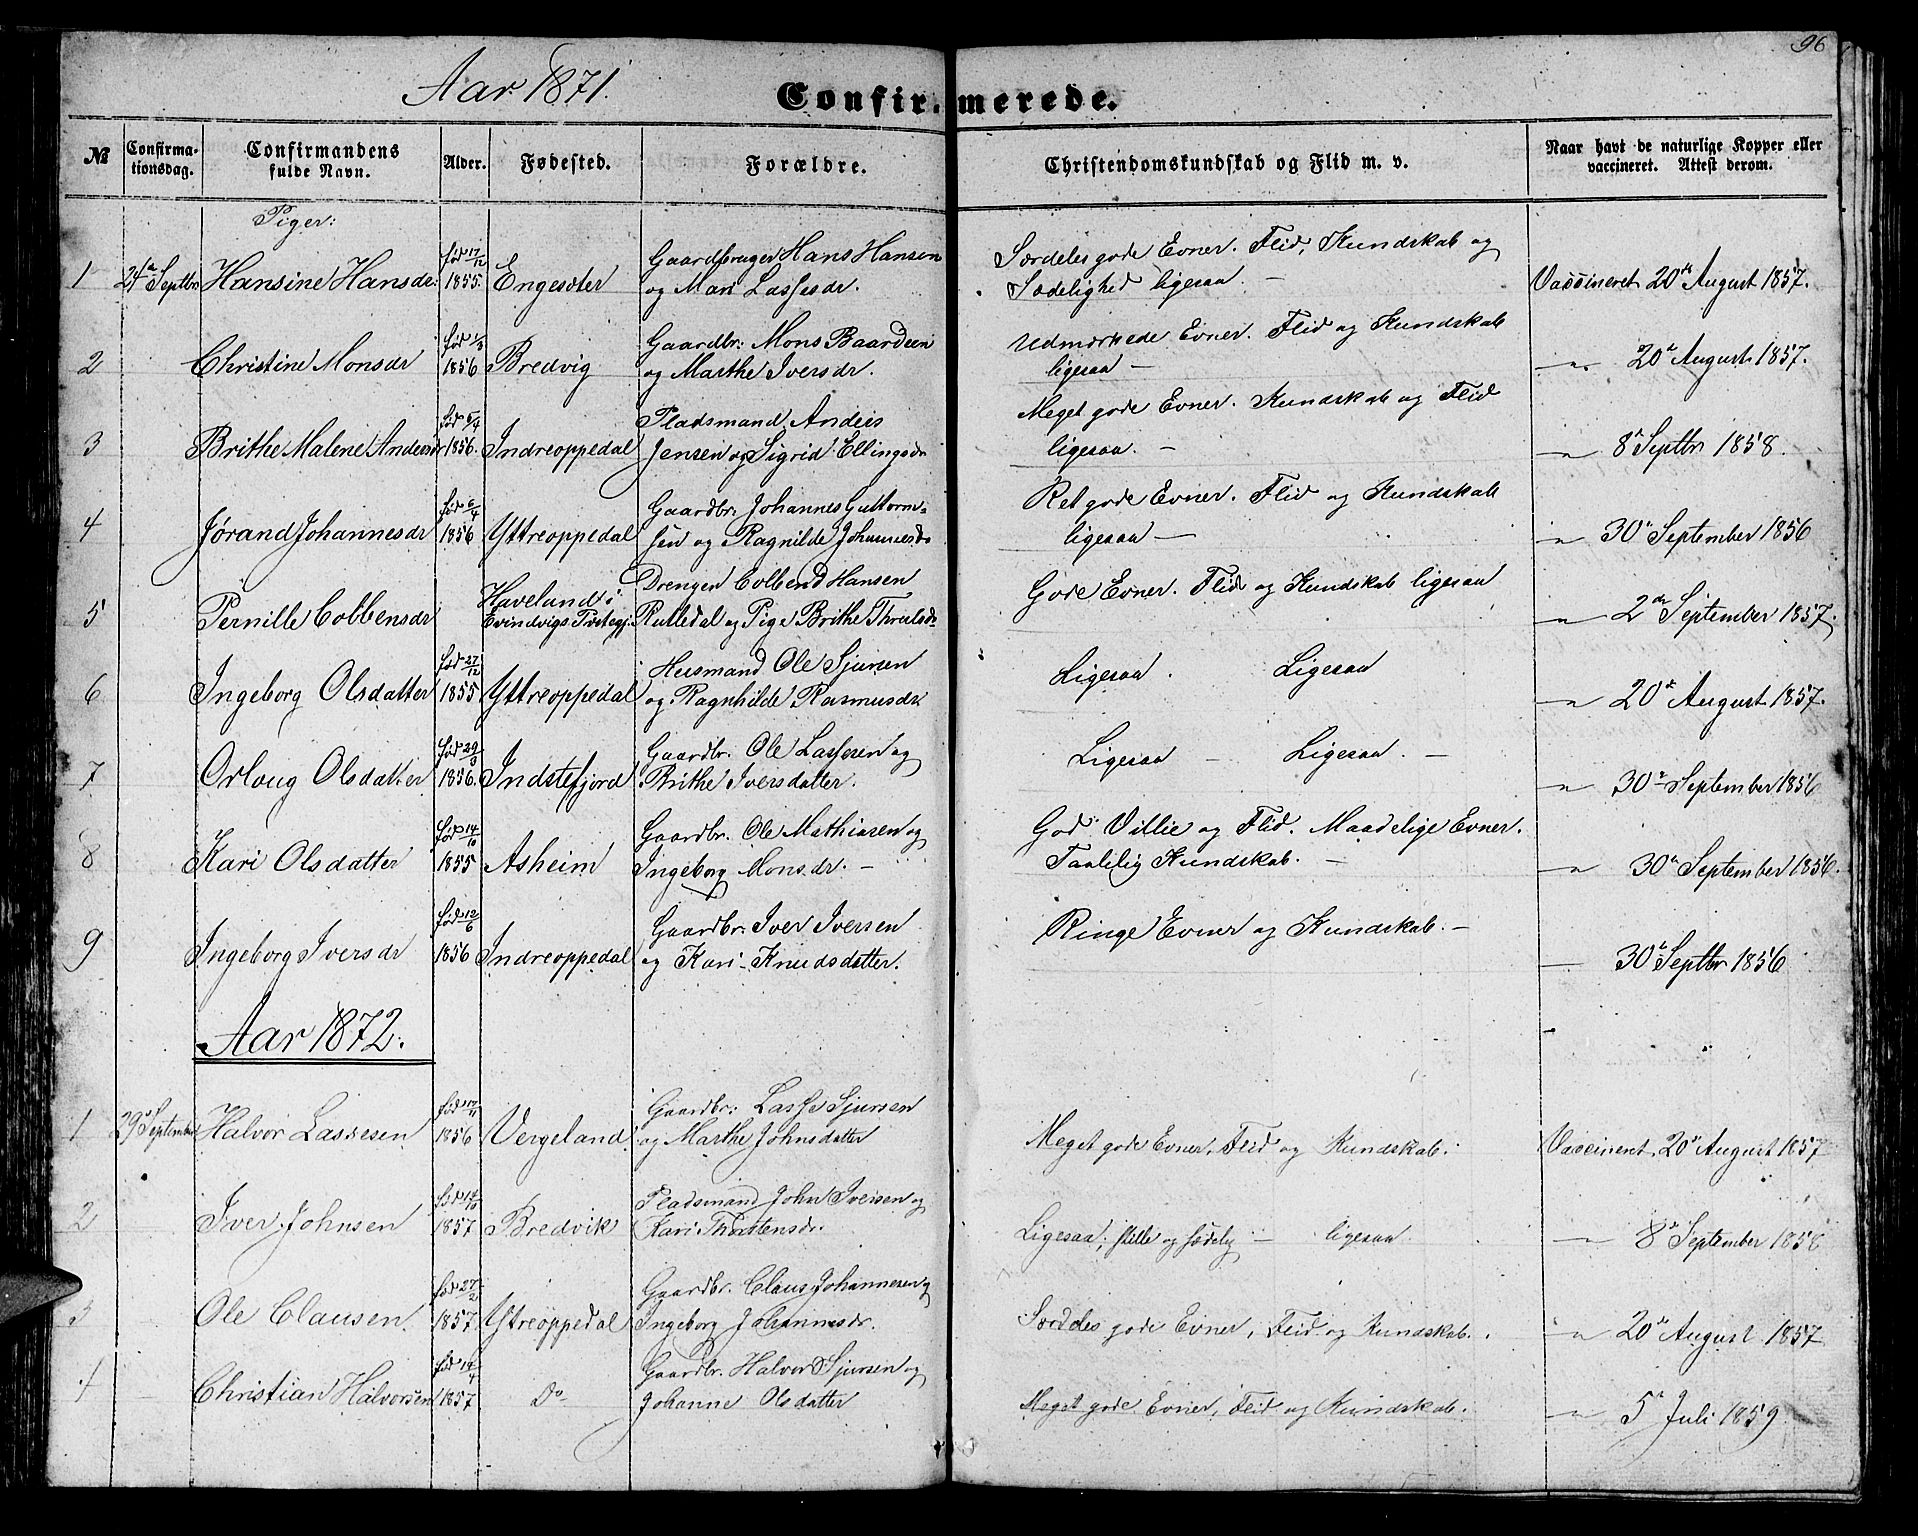 96
Aar 1871.
Confirmerede.
№ Confirma-tionsdag. Confirmandens fulde Navn. Alder. Fødested. Forældre. Christendomskundskab og Flid m. v. Naar havt de naturlige Kopper eller vaccineret. Attest derom.
Piger:
1 24de Septbr Hansine Hansdr. født 17/12 1855. Engesæter Gaardbruger Hans Hansen og Mari Lassesdr. Særdeles gode Evner. Flid, Kundskab og Sædelighed ligesaa. — Vaccineret 20de August 1857.
2 Christine Monsdr født 1/3 1856 Bredvig Gaardbr: Mons Baardsen og Marthe Iversdr. Udmærkede Evner. Flid og Kundskab ligesaa — — " — 20de August 1857.
3 Brithe Malene Andersdr født 5/4 1856. Indreoppedal Pladsmand Anders Jensen og Sigrid Ellingsdr Meget gode Evner. Kundskab og Flid ligesaa. — — " — 8de Septbr 1858.
4 Jørand Johannesdr født 6/4 1856 Yttreoppedal Gaardbr: Johannes Guttorm-sen og Ragnilde Johannesdr Ret gode Evner. Flid og Kundskab ligesaa — — " — 30de September 1856
5 Pernille Colbensdr Haveland i Evindvigs Prstegj: Drengen Colbend Hansen Rutledal og Pige Brithe Thrulsdr Gode Evner. Flid og Kundskab ligesaa — " — 2den September 1857.
6 Ingeborg Olsdatter født 27/12 1855 Yttreoppedal Husmand Ole Sjursen og Ragnhilde Rasmusdr Ligesaa. Ligesaa — " — 20de August 1857.
7 Orloug Olsdatter 1856. Indstefjord Gaardbr. Ole Lassesen og Brithe Iversdatter. Ligesaa — Ligesaa. — — " — 30de September 1856
8 Kari Olsdatter født 14/10 1855 Asheim Gaardbr. Ole Mathiasen og Ingeborg Monsdr. — God Villie og Flid. Maadelige Evner. Taalelig Kundskab. — — " — 30de September 1856.
9 Ingeborg Iversdr født 12/6 1856 Indreoppedal Gaardbr: Iver Iversen og Kari Knudsdatter. Ringe Evner og Kundskab. — — 30de Septbr 1856
Aar 1872.
1 29de September Halvor Lassesen født 17/11 1856 Vergeland Gaardbr: Lasse Sjursen og Marthe Johnsdatter Meget gode Evner, Flid og Kundskab. Vaccineret 20de August 1857
2 Iver Johnsen 1857 Bredvik Pladsmand John Iversen og Kari Thorstensdr. Ligesaa; stille og sædelig — ligesaa — " — 8de September 1858
3 Ole Clausen født 27/2 1857 Ytreoppedal Gaardbr. Claus Johannesen og Ingeborg Johannesdr. Særdeles gode Evner, Flid og Kundskab. — " — 20de August 1857
4 Christian Halvorsen født 14/4 1857 Do Gaardbr. Halvor Sjursen og Johanne Olsdatter Meget gode Evner, Flid og Kundskab. — " — 5te Juli 1859